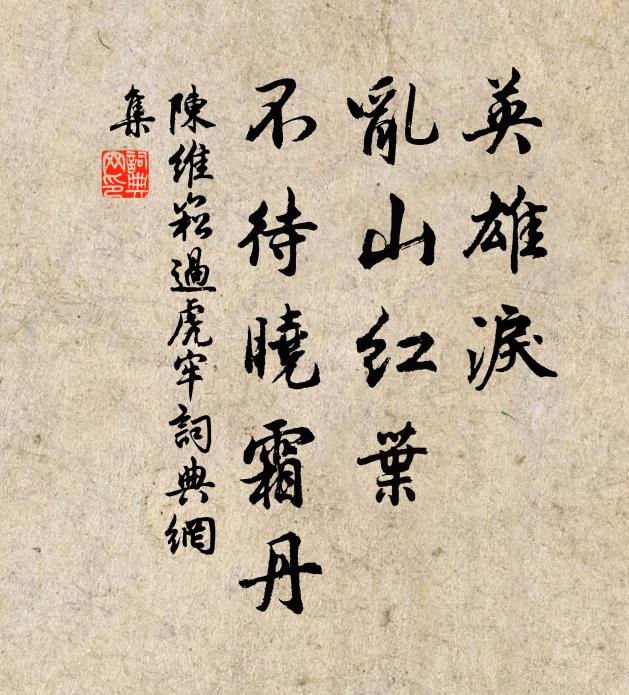 英雄淚
亂山紅葉
不待曉霜丹
陳維崧過虎牢詞典網
集
詞典
网印